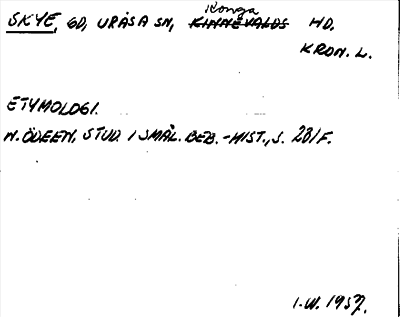 Konga
SKYE, GD, URÅSA SN, KINNEVALDS HD.
KRON. L.
ETYMOLOGI.
N. ÖDEEN, STUD. I SMÅL. BEB.-HIST., S. 281F.
1957.